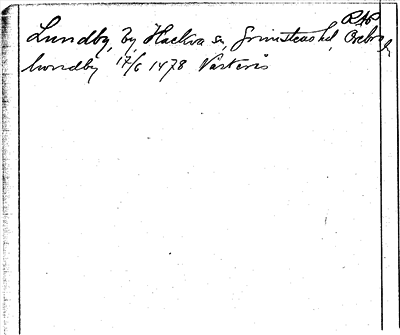 RAP
Lundby, by, Hackva sn, Grimstens hd, Örebro l
lundby 17/6 1478 Västerås